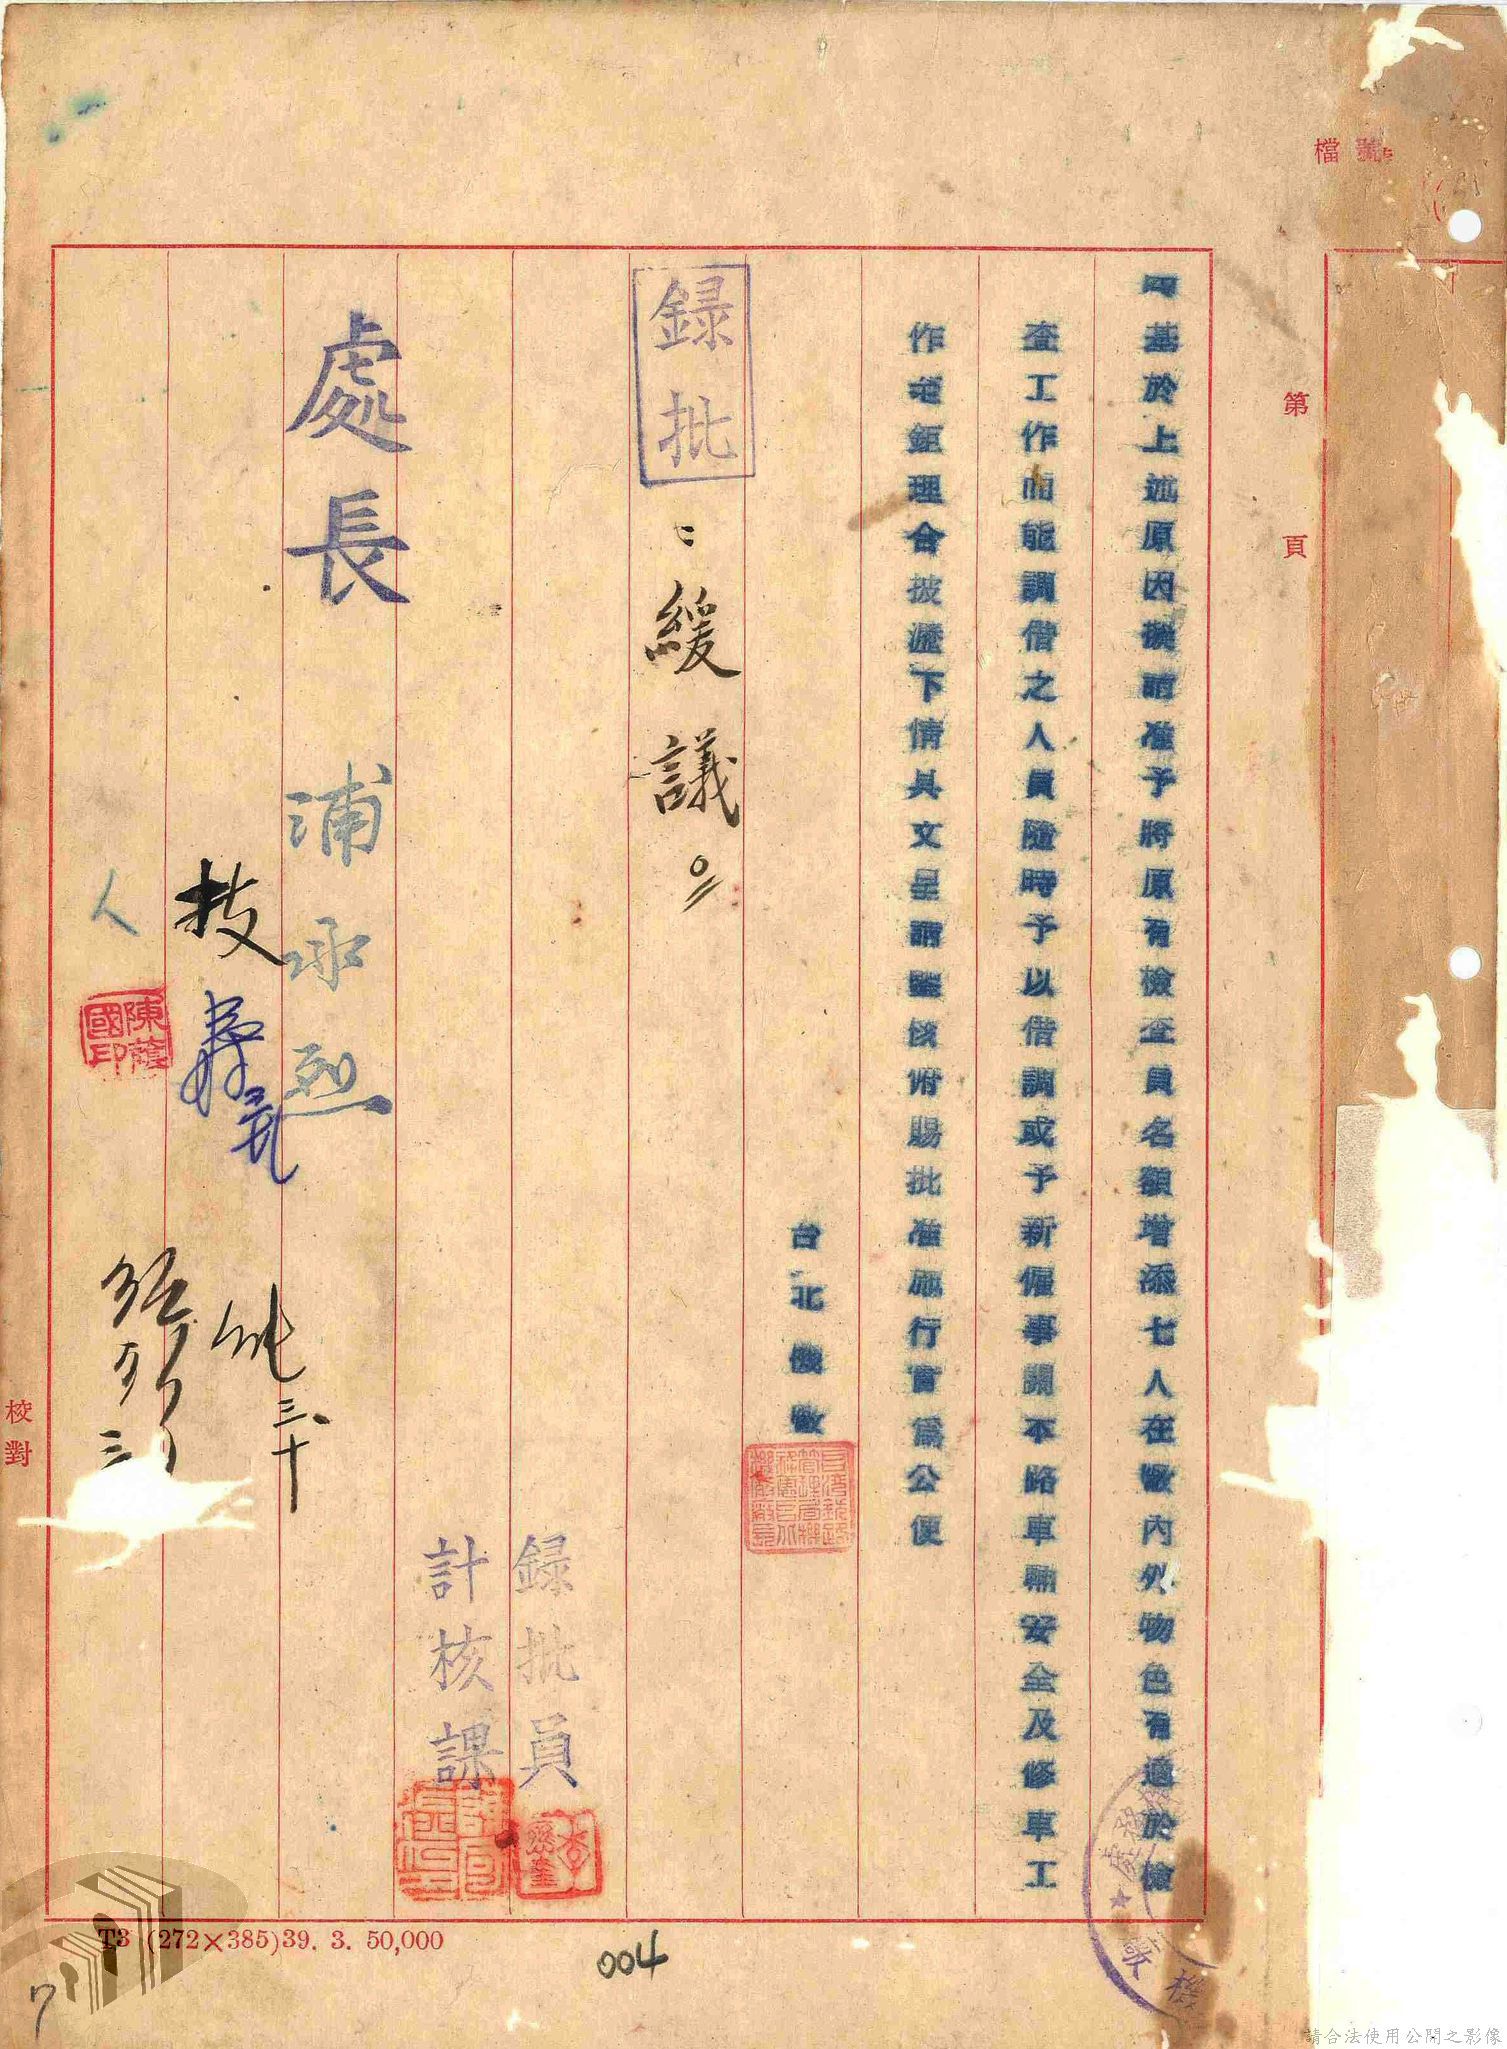 檔號
第 頁
四基於上述原因擬請准予將原有檢查員名額增添七人在敝內外物色有適於檢
查工作而能調借之人員隨時予以借調或予新僱事關本路車輛安全及修車工
作老鉅理合披瀝下情具文呈請鑒核俯賜批准施行實爲公便
台北機
錄批
緩議
錄批員
計核課
處長 浦承烈
技
三十
人
陳 國印
校對
T3 (272×385)39. 3. 50,000
004
7
請合法使用公開之影像